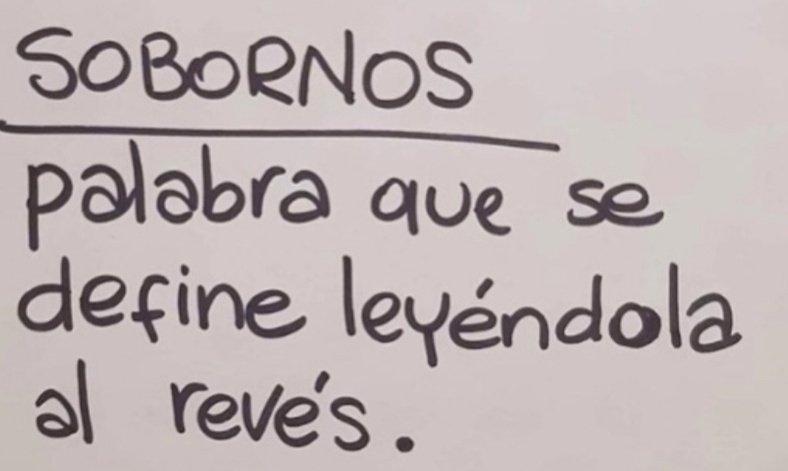 SOBORNOS
palabra que se
define leyéndola
al revés.